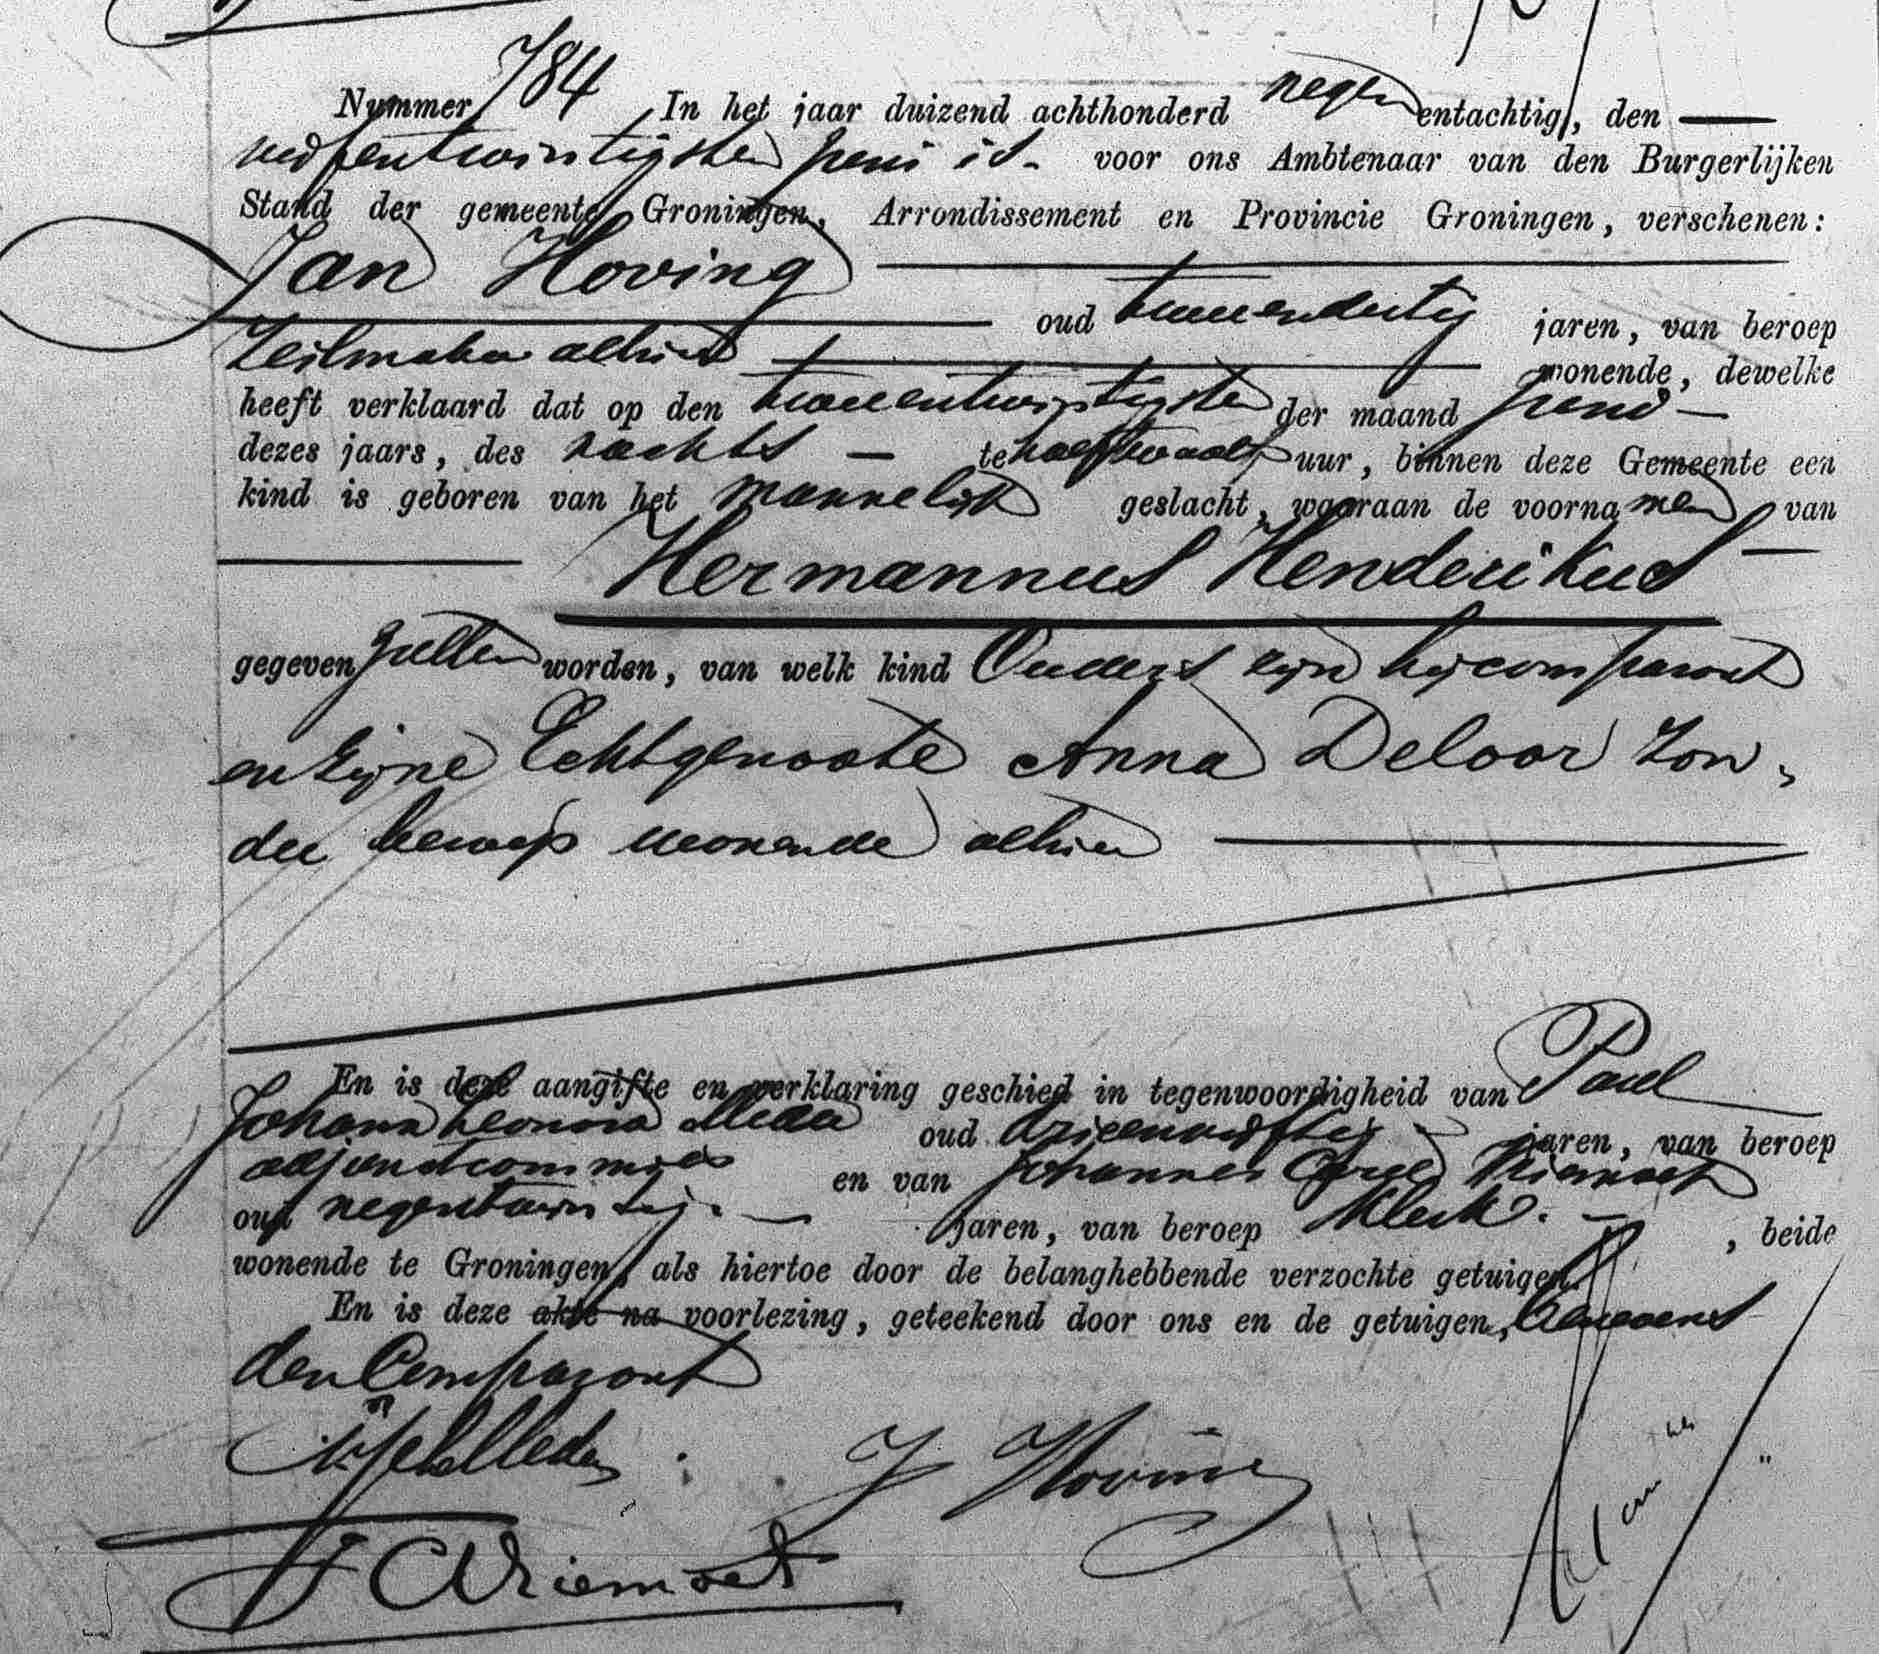 Nummer 784 In het jaar duizend achthonderd negenentachtig, den
vijfentwintigsten Juni is voor ons Ambtenaar van den Burgerlijken
Stand der gemeente Groningen, Arrondissement en Provincie Groningen, verschenen:
Jan Hoving
oud tweeendertig jaren, van beroep
Zeilmaker alhier wonende, dewelke
heeft verklaard dat op den tweeentwintigsten der maand Juni
dezes jaars, des nachts te half twaalf uur, binnen deze Gemeente een
kind is geboren van het mannelijk geslacht, waaraan de voornamen van
Hermannus Henderikus
gegeven zullen worden, van welk kind Ouders zijn hij comparant
en zijne Echtgenoote Anna Deloor zon-
der beroep wonende alhier
En is deze aangifte en verklaring geschied in tegenwoordigheid van Paul
Johann Leonora oud drieenvijftig jaren, van beroep
adjunctcommies en van Johannes Carel Vriemoet
oud negentwintig jaren, van beroep Klerk. , beide
wonende te Groningen, als hiertoe door de belanghebbende verzochte getuigen.
En is deze akte na voorlezing, geteekend door ons en de getuigen, benevens
den Comparant
J Hoving
J C Vriemoet